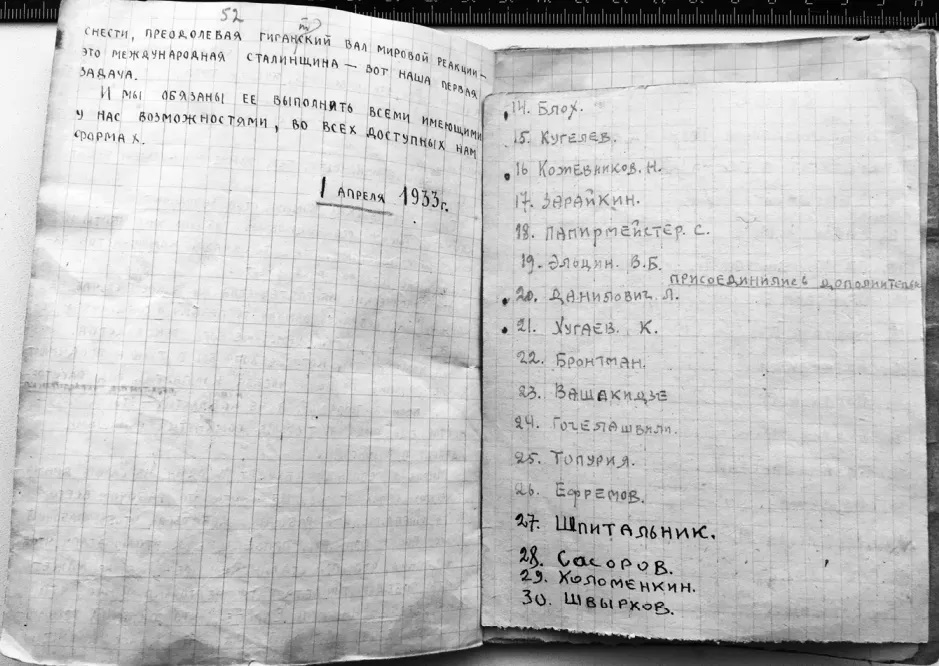 52
снести, преодолевая гигантский вал мировой реакции –
это международная сталинщина – вот наша первая
задача.
И мы обязаны ее выполнять всеми имеющимися
у нас возможностями, во всех доступных нам
формах.
1 апреля 1933г.
14. Блох.
15. Кугелев.
16 Кожевников. Н.
17. Зарайкин.
18. Папирмейстер. С.
19. Эльцин. В.Б.
присоединились дополнительн
20. Данилович. Л.
21. Хугаев. К.
22. Бронтман.
23. Вашакидзе
24. Гочелашвили.
25. Топурия.
26. Ефремов.
27. Шпитальник.
28. Сасоров.
29. Коломенкин.
30. Швырков.